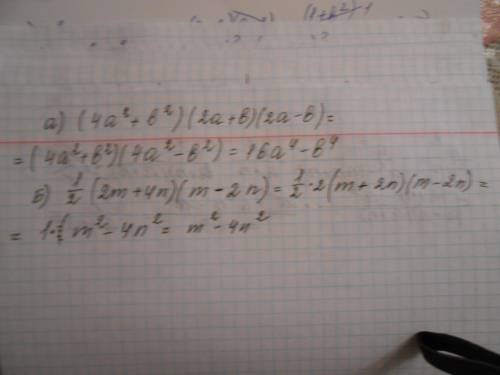 а) (4a²+b²)(2a+b)(2a-b)=
=(4a²+b²)(4a²-b²)=16a⁴-b⁴
б) 1/2 (2m+4n)(m-2n)=1/2·2(m+2n)(m-2n)=
= m²-4n²= m²-4n²